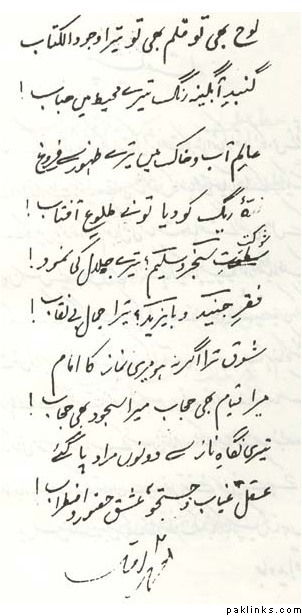 لوح بھی تو قلم بھی تو تیرا وجود الکتاب
گنبدِ آبگینہ رنگ تیرے محیط میں حباب!
عالمِ آب و خاک میں تیرے ظہور سے فروغ
ذرۂ ریگ کو دیا تو نے طلوعِ آفتاب!
شوکتِ سنجر و سلیم؛ تیرے جلال کی نمود!
فقرِ جنید و بایزید؛ تیرا جمال بے نقاب!
شوق ترا اگر نہ ہو میری نماز کا امام
میرا قیام بھی حجاب میرا سجود بھی حجاب!
تیری نگاہِ ناز سے دونوں مراد پا گئے
عقل، غیاب و جستجو؛ عشق، حضور و اضطراب!
محمد اقبال
paklinks.com